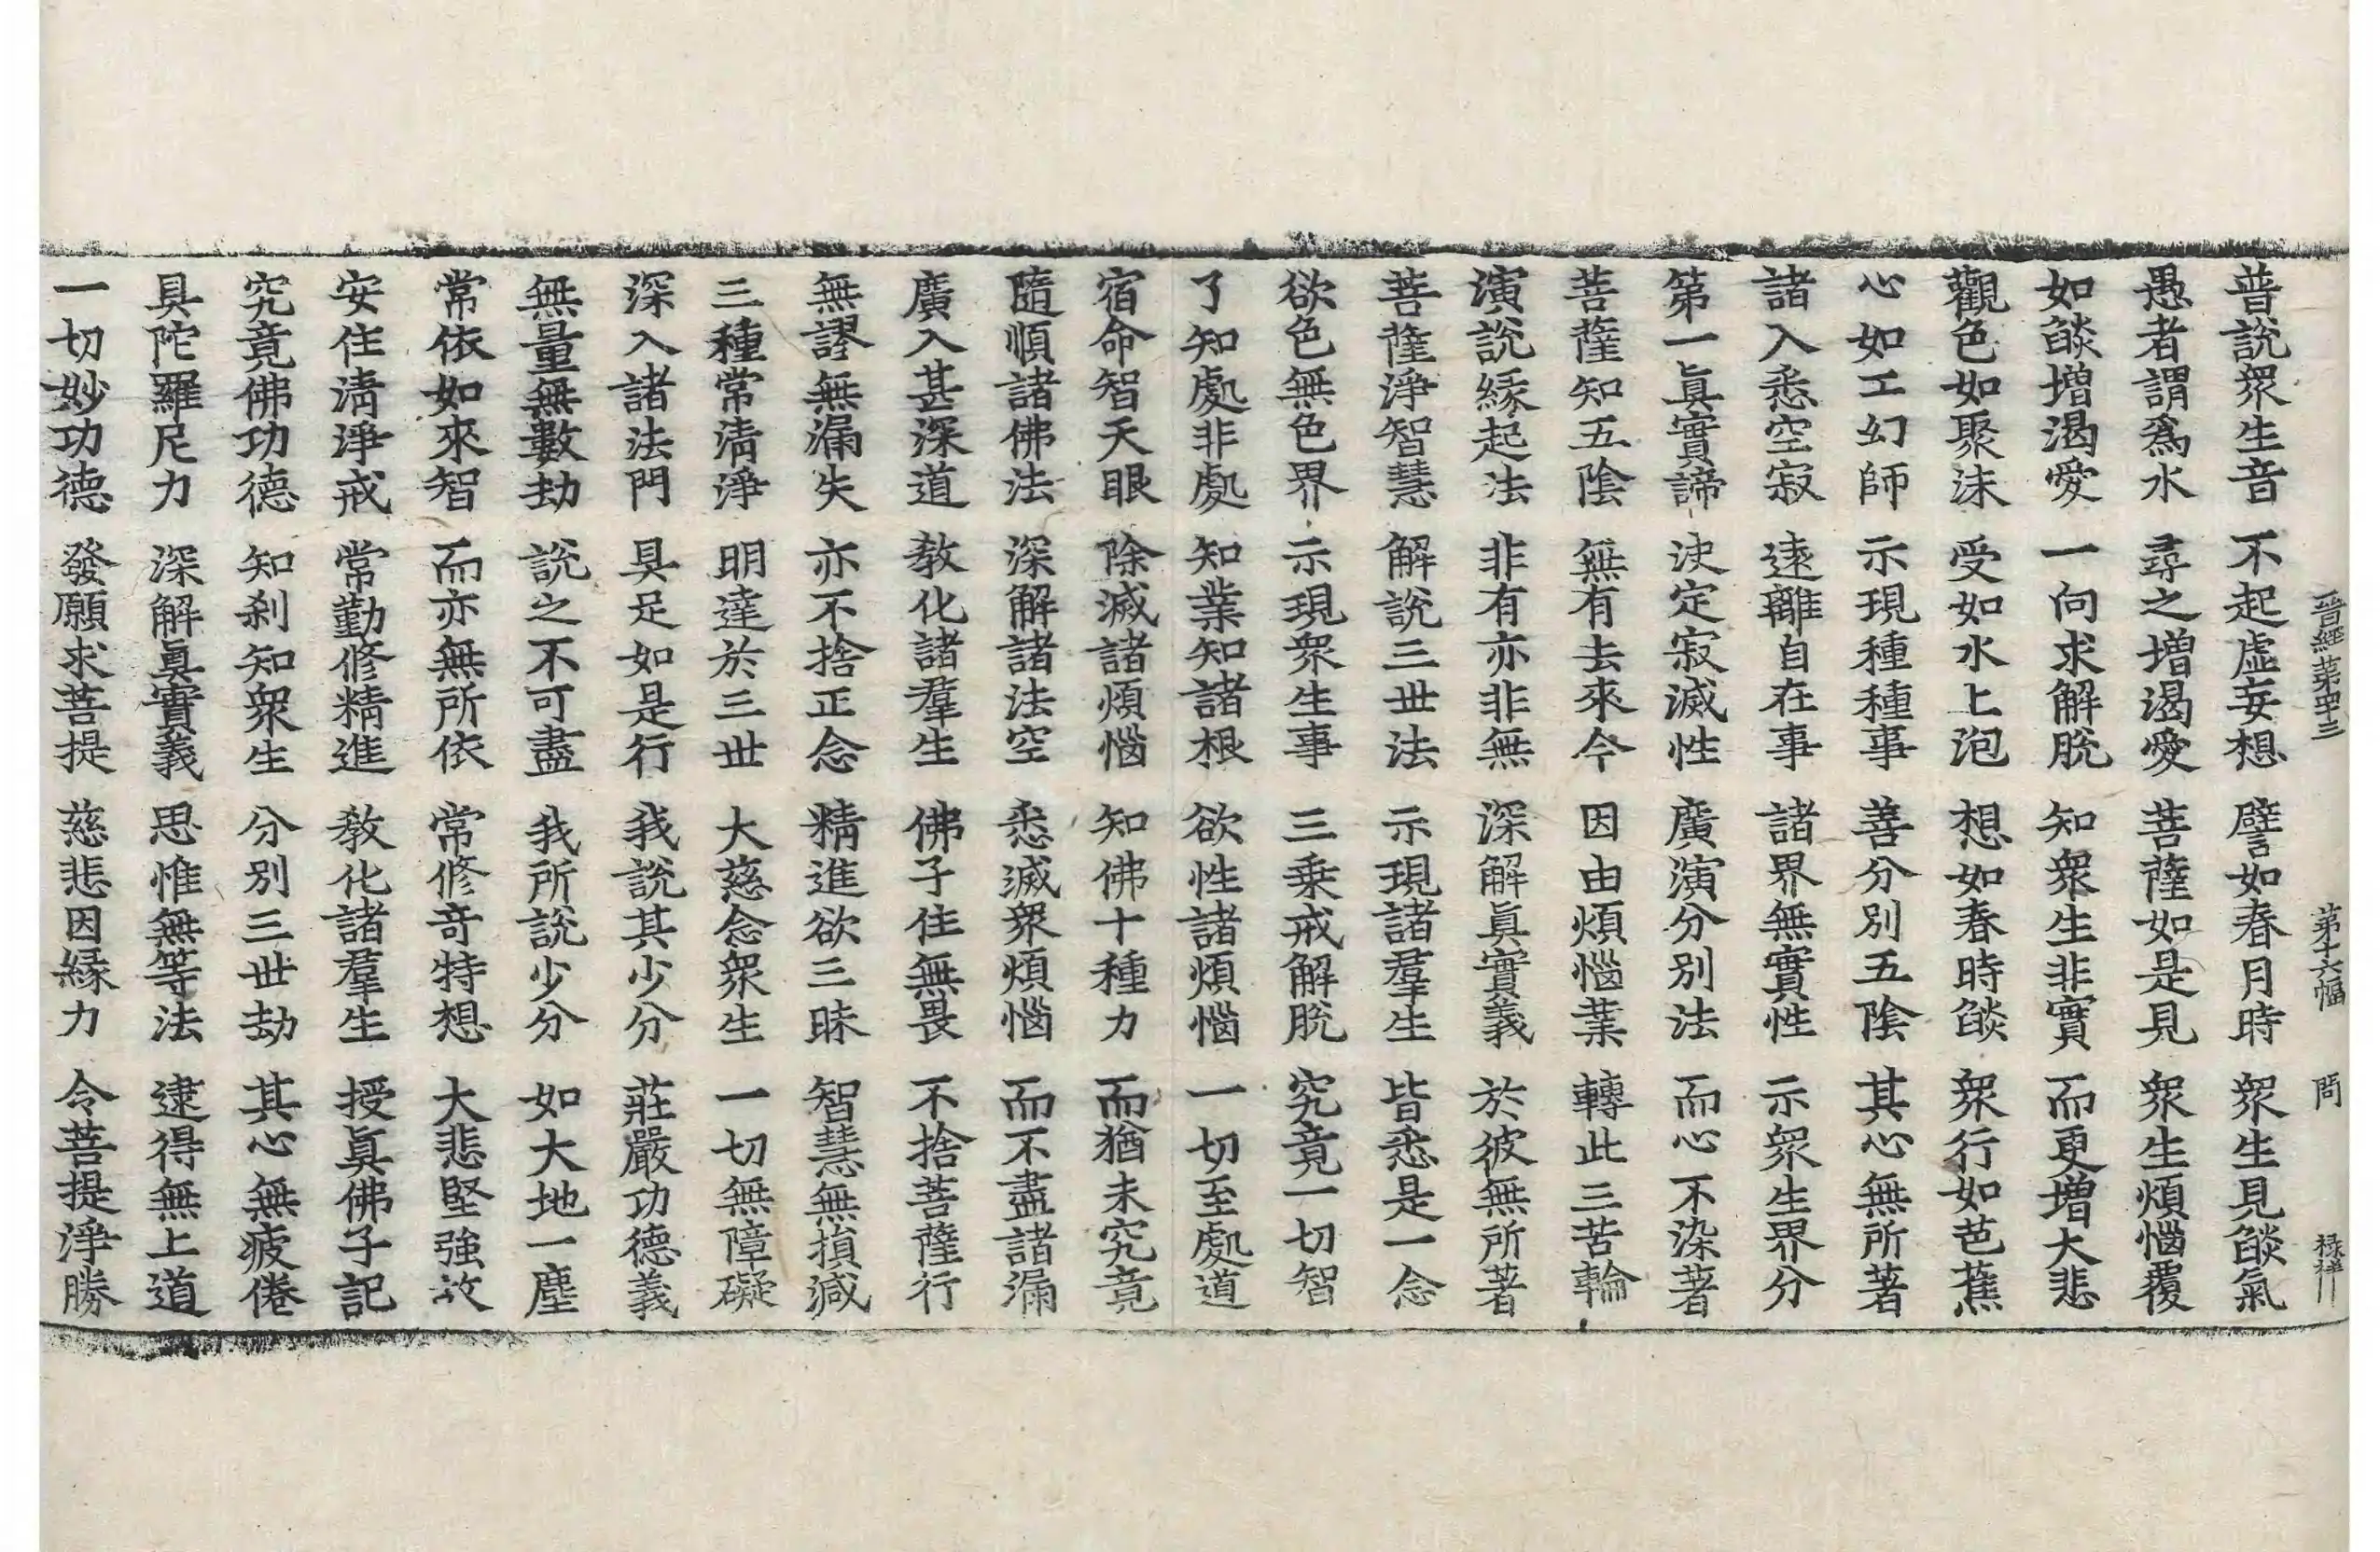 晉經第四十三 第十六幅 問
普說眾生音 不起虛妄想 譬如春月時 眾生見燄氣
愚者謂為水 尋之增渴愛 菩薩如是見 眾生煩惱覆
如燄增渴愛 一向求解脫 知眾生非實 而更增大悲
觀色如聚沫 受如水上泡 想如春時燄 眾行如芭蕉
心如工幻師 示現種種事 善分別五陰 其心無所著
諸入悉空寂 遠離自在事 諸界無實性 示眾生界分
第一真實諦 決定寂滅性 廣演分別法 而心不染著
菩薩知五陰 無有去來今 因由煩惱業 轉此三苦輪
演說緣起法 非有亦非無 深解真實義 於彼無所著
菩薩淨智慧 解說三世法 示現諸羣生 皆悉是一念
欲色無色界 示現眾生事 三乗戒解脫 究竟一切智
了知處非處 知業知諸根 欲性諸煩惱 一切至處道
宿命智天眼 除滅諸煩惱 知佛十種力 而猶未究竟
隨順諸佛法 深解諸法空 悉滅眾煩惱 而不盡諸漏
廣入甚深道 教化諸羣生 佛子住無畏 不捨菩薩行
無謬無漏失 亦不捨正念 精進欲三昧 智慧無損減
三種常清淨 明達於三世 大慈念眾生 一切無障礙
深入諸法門 具足如是行 我說其少分 莊嚴功德義
無量無數劫 說之不可盡 我所說少分 如大地一塵
常依如來智 而亦無所依 常修奇特想 大悲堅強故
安住清淨戒 常勤修精進 教化諸羣生 授真佛子記
究竟佛功德 知剎知眾生 分別三世劫 其心無疲倦
具陀羅尼力 深解真實義 思惟無等法 逮得無上道
一切妙功德 發願求菩提 慈悲因緣力 令菩提淨勝